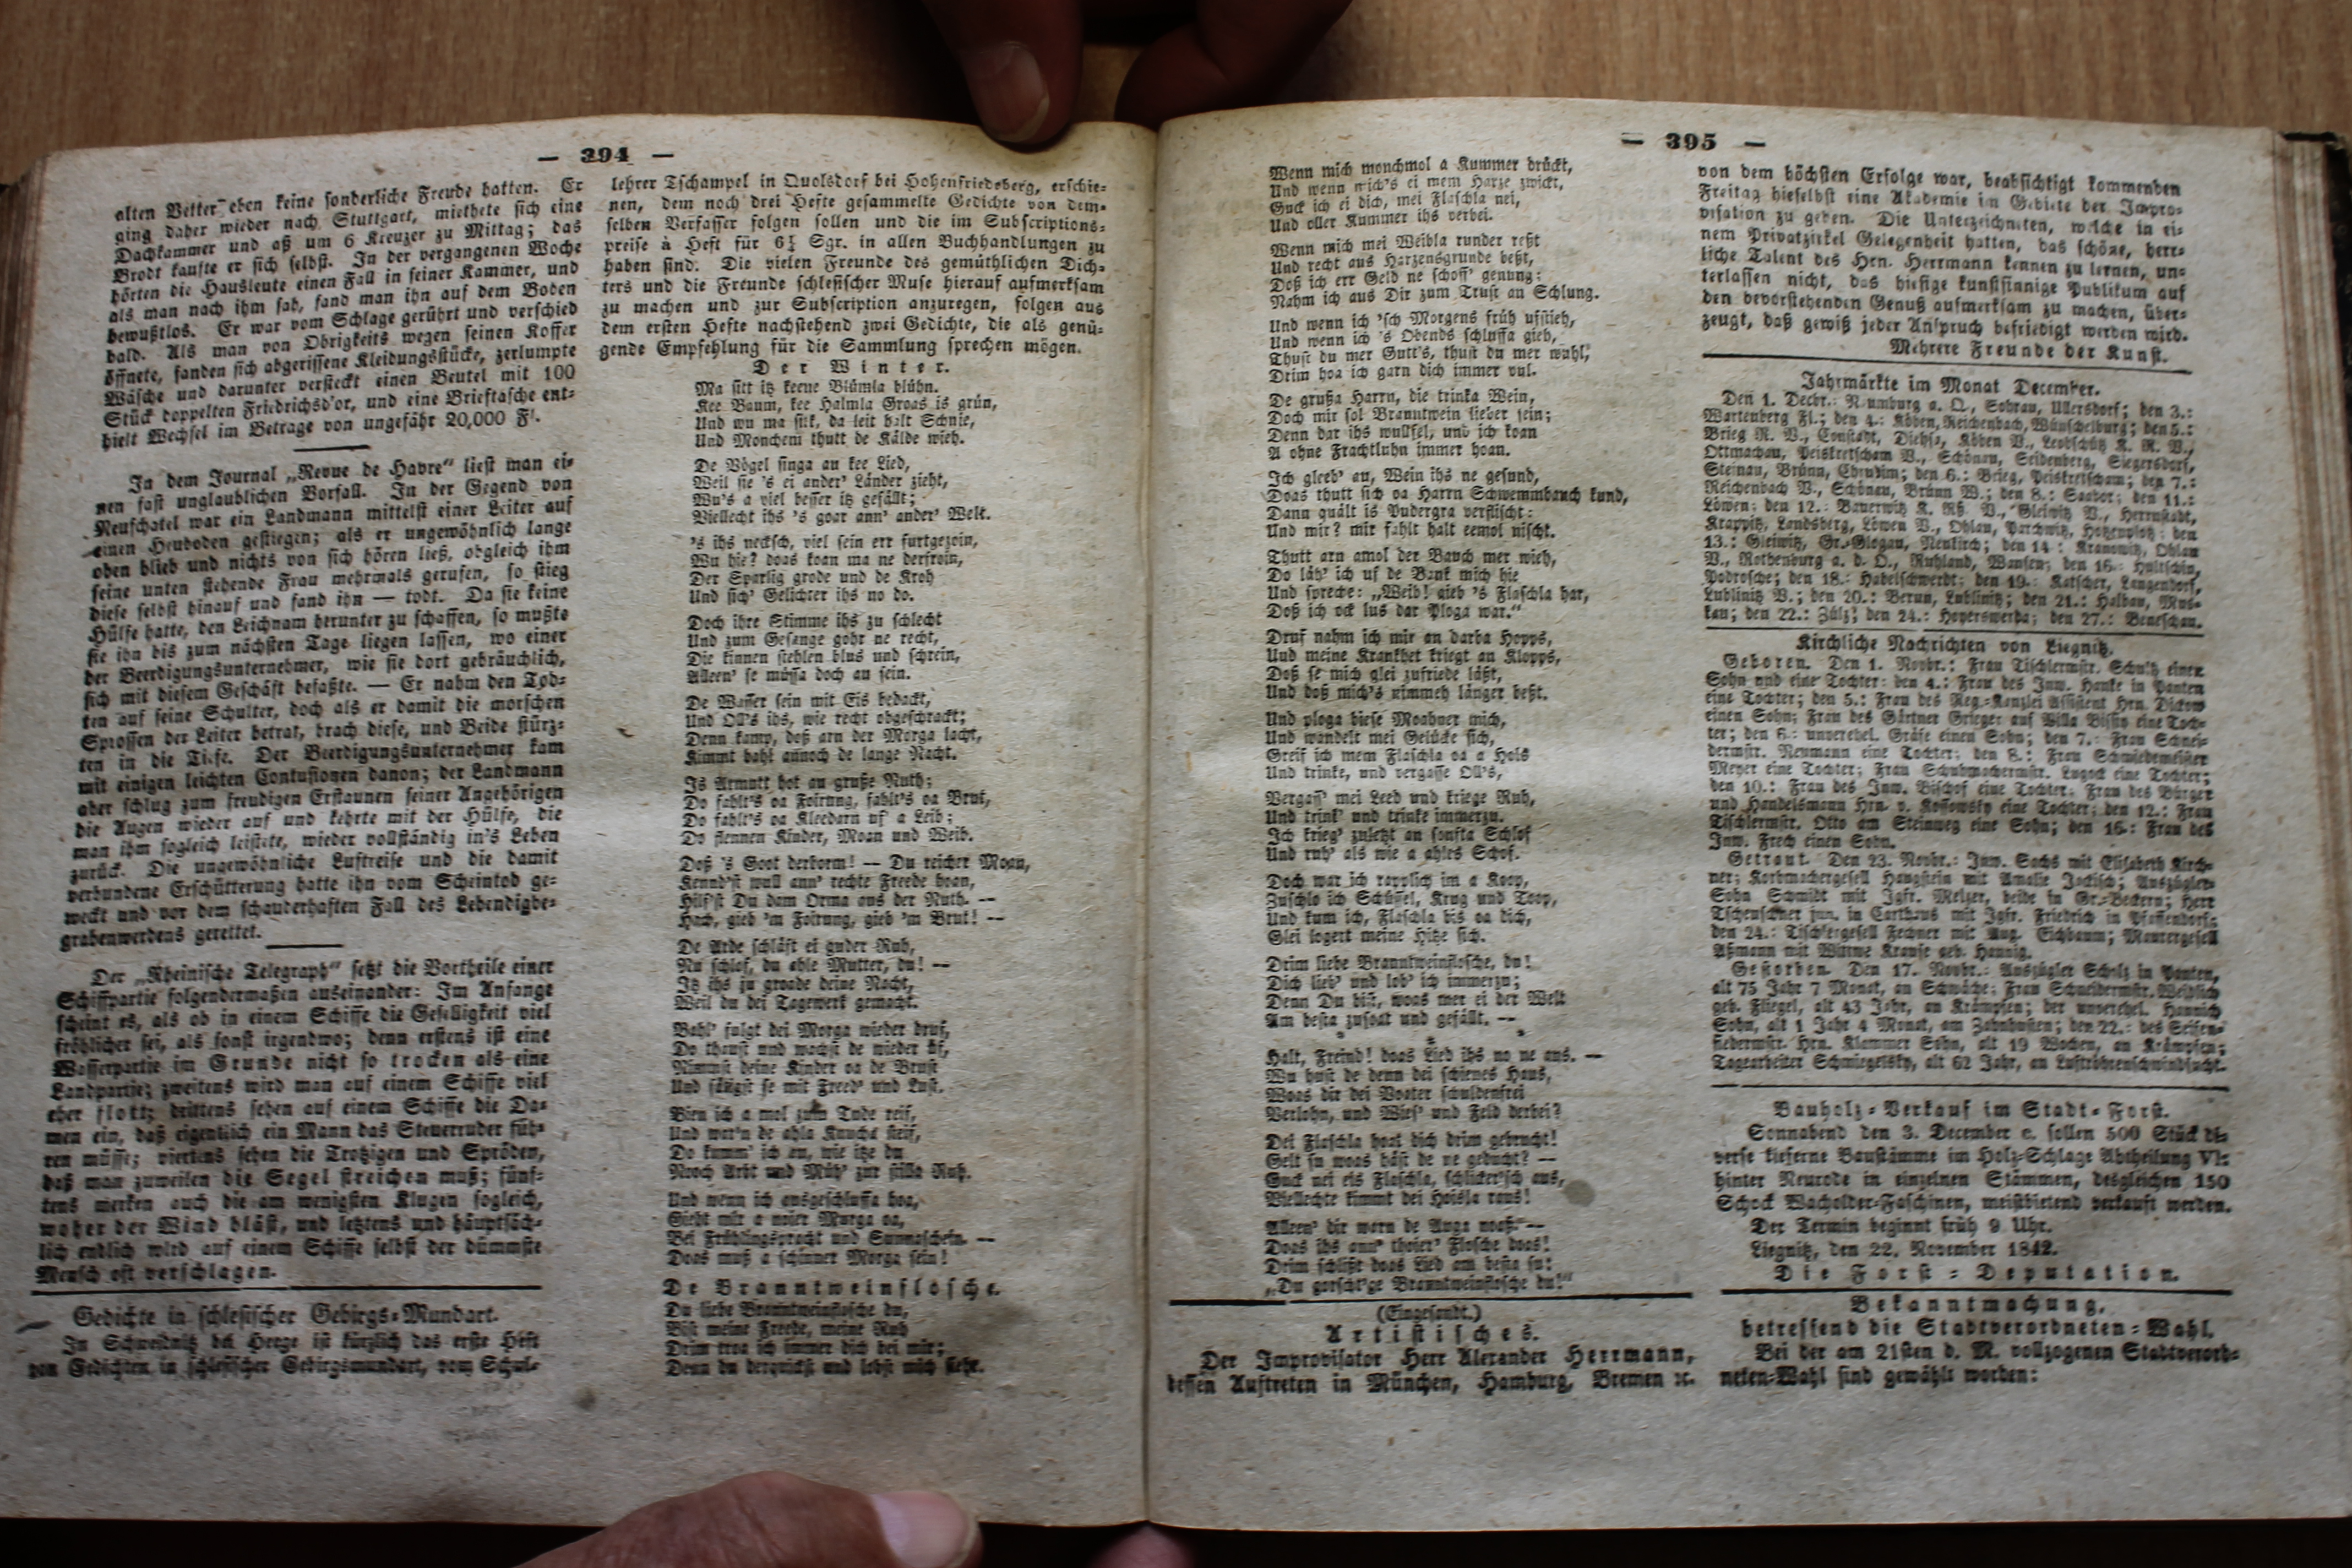 — 394 —
alten Vetter eben keine sonderliche Freude hatten. Er
ging daher wieder nach Stuttgart, miethete sich eine
Dachkammer und aß um 6 Kreuzer zu Mittag; das
Brodt kaufte er sich selbst. In der vergangenen Woche
hörten die Hausleute einen Fall in seiner Kammer, und
als man nach ihm sah, fand man ihn auf dem Boden
bewußtlos. Er war vom Schlage gerührt und verschied
bald. Als man von Obrigkeits wegen seinen Koffer
öffnete, fanden sich abgerissene Kleidungsstücke, zerlumpte
Wäsche und darunter versteckt einen Beutel mit 100
Stück doppelten Friedrichsd'or, und eine Brieftasche ent-
hielt Wechsel im Betrage von ungefähr 20,000 Fl.
In dem Journal „Revue de Havre“ liest man ei-
nen fast unglaublichen Vorfall. In der Gegend von
Neufchatel war ein Landmann mittelst einer Leiter auf
einen Heuboden gestiegen; als er ungewöhnlich lange
oben blieb und nichts von sich hören ließ, obgleich ihm
seine unten stehende Frau mehrmals gerufen, so stieg
diese selbst hinauf und fand ihn — todt. Da sie keine
Hülfe hatte, den Leichnam herunter zu schaffen, so mußte
sie ihn bis zum nächsten Tage liegen lassen, wo einer
der Beerdigungsunternehmer, wie sie dort gebräuchlich,
sich mit diesem Geschäft befaßte. — Er nahm den Tod-
ten auf seine Schulter, doch als er damit die morschen
Sprossen der Leiter betrat, brach diese, und Beide stürz-
ten in die Tiefe. Der Beerdigungsunternehmer kam
mit einigen leichten Contusionen davon; der Landmann
aber schlug zum freudigen Erstaunen seiner Angehörigen
die Augen wieder auf und kehrte mit der Hülfe, die
man ihm sogleich leistete, wieder vollständig in's Leben
zurück. Die ungewöhnliche Luftreise und die damit
verbundene Erschütterung hatte ihn vom Scheintod ge-
weckt und vor dem schauderhaften Fall des Lebendigbe-
grabenwerdens gerettet.
Der „Rheinische Telegraph“ setzt die Vortheile einer
Schiffpartie folgendermaßen auseinander: Im Anfange
scheint es, als ob in einem Schiffe die Geselligkeit viel
fröhlicher sei, als sonst irgendwo; denn erstens ist eine
Wasserpartie im Grunde nicht so trocken als eine
Landpartie; zweitens wird man auf einem Schiffe viel
eher flott; drittens sehen auf einem Schiffe die Da-
men ein, daß eigentlich ein Mann das Steuerruder füh-
ren müsse; viertens sehen die Trotzigen und Spröden,
daß man zuweilen die Segel streichen muß; fünf-
tens merken auch die am wenigsten Klugen sogleich,
woher der Wind bläst, und letztens und hauptsäch-
lich endlich wird auf einem Schiffe selbst der dümmste
Mensch oft verschlagen.
Gedichte in schlesischer Gebirgs-Mundart.
In Schweidnitz bei Heege ist kürzlich das erste Heft
von Gedichten in schlesischer Gebirgsmundart, vom Schul-
lehrer Tschampel in Quolsdorf bei Hohenfriedeberg, erschie-
nen, dem noch drei Hefte gesammelte Gedichte von dem-
selben Verfasser folgen sollen und die im Subscriptions-
preise à Heft für 6¼ Sgr. in allen Buchhandlungen zu
haben sind. Die vielen Freunde des gemüthlichen Dich-
ters und die Freunde schlesischer Muse hierauf aufmerksam
zu machen und zur Subscription anzuregen, folgen aus
dem ersten Hefte nachstehend zwei Gedichte, die als genü-
gende Empfehlung für die Sammlung sprechen mögen.
Der Winter.
Ma sitt itz keene Blümla blühn.
Kee Baum, kee Halmla Groas is grün,
Und wu ma sitt, da leit halt Schnie,
Und Moncheni thutt de Kälde wieh.
De Vögel singa au kee Lied,
Weil sie 's ei ander' Länder zieht,
Wu's a viel besser itz gefällt;
Viellecht ihs 's goar ann' ander' Welt.
's ihs necksch, viel sein err furtgezoin,
Wu hie? doas koan ma ne derfroin,
Der Sparlig grode und de Kroh
Und sich' Gelichter ihs no do.
Doch ihre Stimme ihs zu schlecht
Und zum Gesange gohr ne recht,
Die kinnen stehlen blus und schrein,
Alleen' se müssa doch au sein.
De Wasser sein mit Eis bedackt,
Und Oll's ihs, wie recht obgeschrackt;
Denn kamp, doß arn der Morga lacht,
Kimmt bahl annoch de lange Nacht.
Is Armutt hot au gruße Nuth;
Do fahlt's oa Foirung, fahlt's oa Brut,
Do fahlt's oa Kleedarn uf a Leib;
Do flennen Kinder, Moan und Weib.
Doß 's Goot derborm! — Du reicher Moan,
Kennd'st wull ann' rechte Freede hoan,
Hilf'st Du dam Orma aus der Nuth. —
Hoch, gieb 'm Foirung, gieb 'm Brut! —
De Arde schläft ei guder Ruh,
Nu schlof, du ahle Mutter, du! —
Itz ihs zu groade deine Nacht,
Weil du dei Tagewerk gemacht.
Bahl' fulgt dei Morga wieder druf,
Do thaust und wachst de wieder uf,
Nimmst deine Kinder oa de Brust
Und säugst se mit Freed' und Lust.
Bien ich a mol zum Tude reif,
Und war'n de ahla Knucha steif,
Do kumm' ich en, wie itze du
Nooch Arbt und Müh' zur stilla Ruh.
Und wenn ich ausgeschluffa hoa,
Giebt mir a naier Murga oa,
Bei Frühlingspracht und Sunnaschein. —
Doas muß a schinner Morga sein!
De Branntweinflosche.
Du liebe Branntweinflosche du,
Bist meine Freede, meine Ruh
Drim troa ich immer dich bei mir;
Denn du derquickst und lobst mich siehr.
— 395 —
Wenn mich monchmol a Kummer drückt,
Und wenn mich's ei mem Harze zwickt,
Guck ich ei dich, mei Flaschla nei,
Und oller Kummer ihs verbei.
Wenn mich mei Weibla runder reßt
Und recht aus Harzensgrunde beßt,
Doß ich err Geld ne schoff' genung:
Nahm ich aus Dir zum Trust an Schlung.
Und wenn ich 'sch Morgens früh ufstieh,
Und wenn ich 's Obends schluffa gieh,
Thust du mer Gutt's, thust du mer wuhl,
Drim hoa ich garn dich immer vul.
De grußa Harrn, die trinka Wein,
Doch mir sol Branntwein lieber sein;
Denn dar ihs wullfel, und ich koan
A ohne Frachtluhn immer hoan.
Ich gleeb' au, Wein ihs ne gesund,
Doas thutt sich oa Harrn Schwemmbauch kund,
Dann quält is Pudergra verflischt:
Und mir? mir fahlt halt eemol nischt.
Thutt arn amol der Bauch mer wieh,
Do läh' ich uf de Bank mich hie
Und spreche: „Weib! gieb 's Flaschla har,
Doß ich ock lus dar Ploga war.“
Druf nahm ich mir an darba Hopps,
Und meine Krankhet kriegt an Klopps,
Doß se mich glei zufriede läßt,
Und doß mich's nimmeh länger beßt.
Und ploga biese Moahner mich,
Und wandelt mei Gelücke sich,
Greif ich mem Flaschla oa a Hols
Und trinke, und vergasse Oll's,
Vergass' mei Leed und kriege Ruh,
Und trink' und trinke immerzu.
Ich krieg' zuletzt an sonfta Schlof
Und ruh' als wie a ahles Schof.
Doch war ich rapplich im a Koop,
Zuschlo ich Schüssel, Krug und Toop,
Und kum ich, Flaschla bis oa dich,
Glei logert meine Hitze sich.
Drim liebe Branntweinflosche, du!
Dich lieb' und lob' ich immerzu;
Denn Du bist, woas mer ei der Welt
Am besta zusoat und gefällt. —
Halt, Freind! doas Lied ihs no ne aus. —
Wu hust de denn dei schienes Haus,
Woas dir dei Voater schuldenfrei
Verlohn, und Wies' und Feld derbei?
Dei Flaschla hoat dich drim gebrucht!
Gelt su woas häst de ne geducht? —
Guck nei eis Flaschla, schlicker'sch aus,
Viellechte kimmt dei Hoisla raus!
Alleen' dir warn de Auga nooß. —
Doas ihs ann' thoier' Flosche doas!
Drim schlißt doas Lied am besta su:
„Du gorscht'ge Branntweinflosche du!“
(Eingesandt.)
Artistisches.
Der Improvisator Herr Alexander Herrmann,
dessen Auftreten in München, Hamburg, Bremen ꝛc.
von dem höchsten Erfolge war, beabsichtigt kommenden
Freitag hieselbst eine Akademie im Gebiete der Impro-
visation zu geben. Die Unterzeichneten, welche in ei-
nem Privatzirkel Gelegenheit hatten, das schöne, herr-
liche Talent des Hrn. Herrmann kennen zu lernen, un-
terlassen nicht, das hiesige kunstsinnige Publikum auf
den bevorstehenden Genuß aufmerksam zu machen, über-
zeugt, daß gewiß jeder Anspruch befriedigt werden wird.
Mehrere Freunde der Kunst.
Jahrmärkte im Monat December.
Den 1. Decbr.: Naumburg a. Q., Sohrau, Ullersdorf; den 3.:
Wartenberg Fl.; den 4.: Köben, Reichenbach, Wünschelburg; den 5.:
Brieg R. V., Constadt, Diehsa, Köben V., Leobschütz K. R. V.,
Ottmachau, Peiskretscham V., Schönau, Seidenberg, Siegersdorf,
Steinau, Brünn, Chrudim; den 6.: Brieg, Peiskretscham; den 7.:
Reichenbach V., Schönau, Brünn W.; den 8.: Saabor; den 11.:
Löwen; den 12.: Bauerwitz K. Rß. V., Gleiwitz V., Herrnstadt,
Krappitz, Landsberg, Löwen V., Ohlau, Parchwitz, Hotzenplotz; den
13.: Gleiwitz, Gr.-Glogau, Neukirch; den 14.: Kranowitz, Ohlau
V., Rothenburg a. d. O., Ruhland, Wansen; den 16.: Hultschin,
Podrosche; den 18.: Habelschwerdt; den 19.: Katscher, Langendorf,
Lublinitz V.; den 20.: Berun, Lublinitz; den 21.: Halbau, Mus-
kau; den 22.: Zülz; den 24.: Hoyerswerda; den 27.: Beneschau.
Kirchliche Nachrichten von Liegnitz.
Geboren. Den 1. Novbr.: Frau Tischlermstr. Schultz einen
Sohn und eine Tochter; den 4.: Frau des Inw. Hanke in Panten
eine Tochter; den 5.: Frau des Reg.-Kanzlei Assistent Hrn. Dickow
einen Sohn; Frau des Gärtner Grieger auf Villa Bissin eine Toch-
ter; den 6.: unverehel. Gräse einen Sohn; den 7.: Frau Schnei-
dermstr. Neumann eine Tochter; den 8.: Frau Schmiedemeister
Meyer eine Tochter; Frau Schuhmachermstr. Lugock eine Tochter;
den 10.: Frau des Inw. Bischof eine Tochter; Frau des Bürger
und Handelsmann Hrn. v. Kossowsky eine Tochter; den 12.: Frau
Tischlermstr. Otto am Steinweg eine Sohn; den 16.: Frau des
Inw. Frech einen Sohn.
Getraut. Den 23. Novbr.: Inw. Sachs mit Elisabeth Kirch-
ner; Korbmachergesell Hangstein mit Amalie Jockisch; Auszügler-
Sohn Schmidt mit Igfr. Melzer, beide in Gr.-Beckern; Herr
Tschenschner jun. in Carthaus mit Igfr. Friedrich in Pfaffendorf;
den 24.: Tischlergesell Fechner mit Aug. Eichbaum; Maurergesell
Aßmann mit Wittwe Krause geb. Hannig.
Gestorben. Den 17. Novbr.: Auszügler Scholz in Panten,
alt 75 Jahr 7 Monat, an Schwäche; Frau Schneidermstr. Weihlich
geb. Fliegel, alt 43 Jahr, an Krämpfen; der unverehel. Hannich
Sohn, alt 1 Jahr 4 Monat, am Zahnhusten; den 22.: des Seifen-
siedermstr. Hrn. Klammer Sohn, alt 19 Wochen, an Krämpfen;
Tagearbeiter Schmiegelsky, alt 62 Jahr, an Luftröhrenschwindsucht.
Bauholz-Verkauf im Stadt-Forst.
Sonnabend den 3. December c. sollen 500 Stück di-
verse kieferne Baustämme im Holz-Schlage Abtheilung VI:
hinter Neurode in einzelnen Stämmen, desgleichen 150
Schock Wachholder-Faschinen, meistbietend verkauft werden.
Der Termin beginnt früh 9 Uhr.
Liegnitz, den 22. November 1842.
Die Forst-Deputation.
Bekanntmachung,
betreffend die Stadtverordneten-Wahl.
Bei der am 21sten d. M. vollzogenen Stadtverord-
neten-Wahl sind gewählt worden: